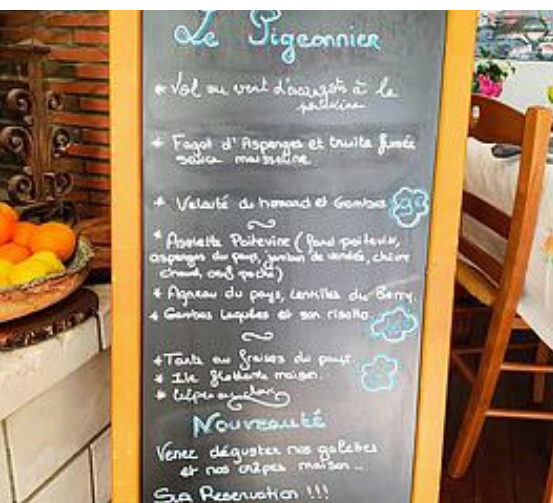 Le Pigeonnier
* Vol au vent d'escargots à la
poitevine
* Fagot d'Asperges et truite fumée
sauce mousseline
* Velouté de homard et Gambas
* Assiette Poitevine (farci poitevin,
asperges du pays, jambon de vendée, chèvre
chaud, oeuf poché)
* Agneau du pays, Lentilles du Berry.
* Gambas Laquées et son risotto.
* Tarte au fraises du pays
* Ile flottante maison.
* Crêpe
Nouveauté
Venez déguster nos galettes
et nos crêpes maison...
Sur Reservation !!!